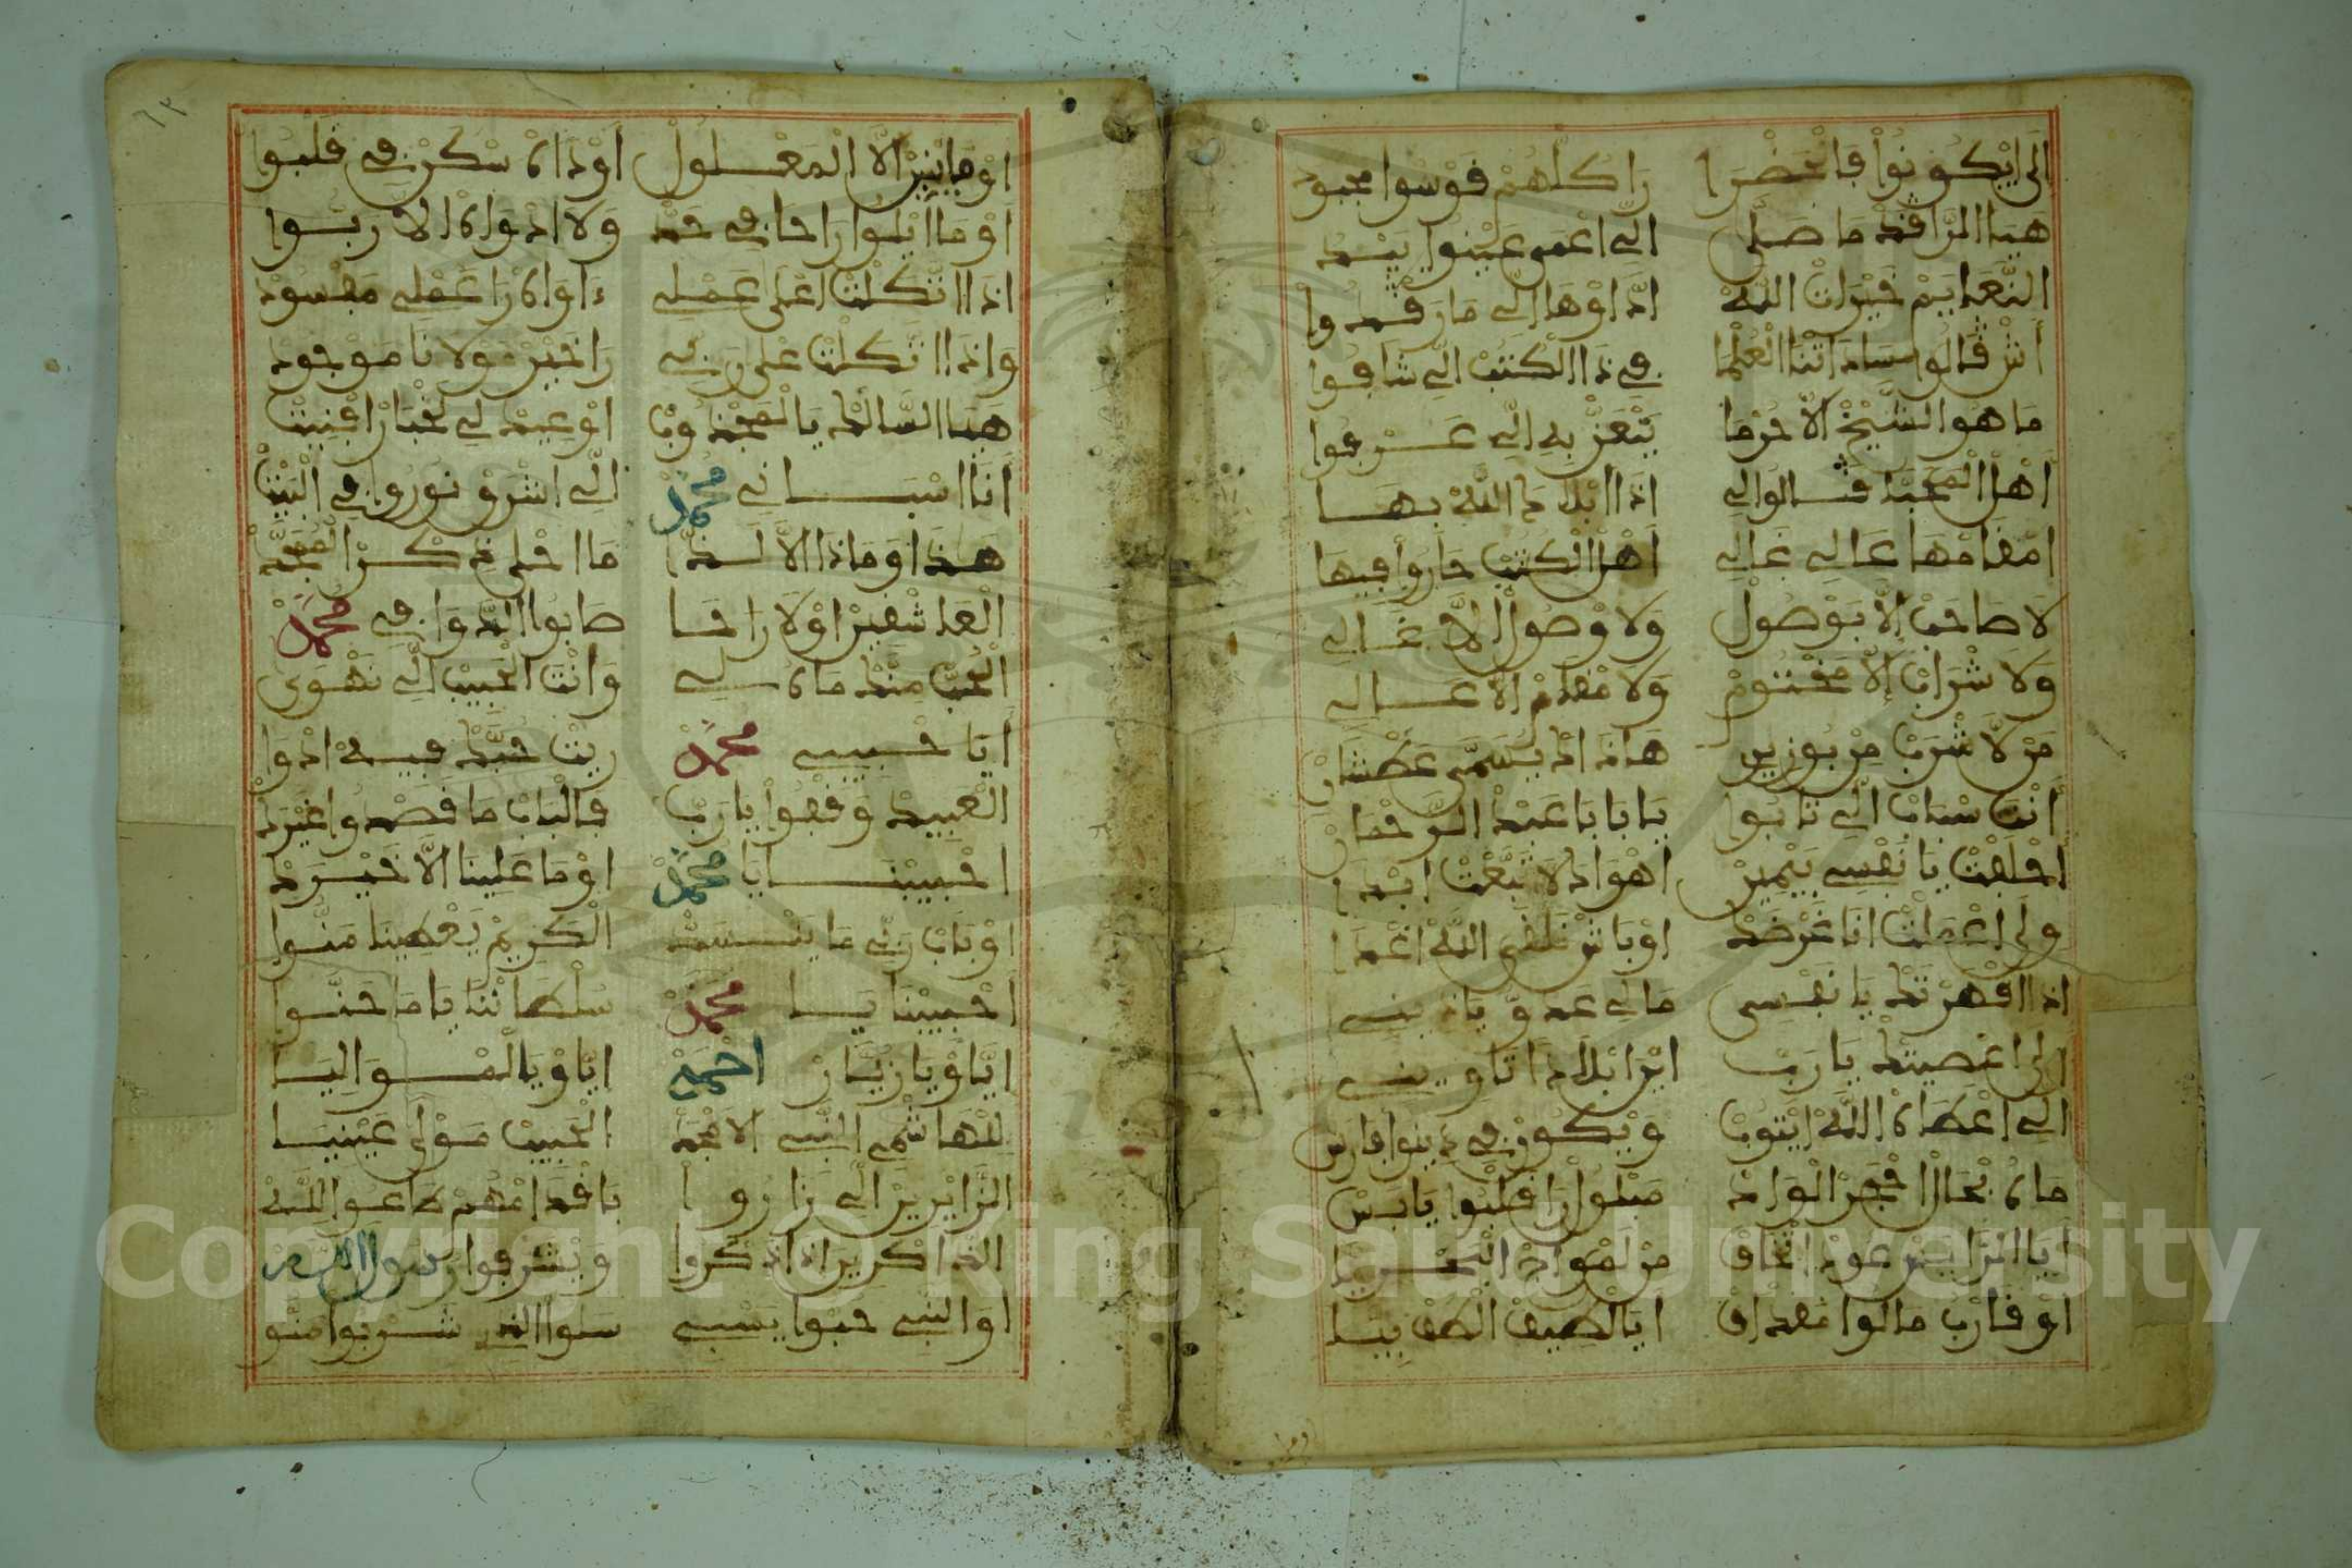 الى ايكونوا فالحضرا راكلهم فوسوا مجبود
هيا الراقد ما صلى الي اعمى عينوا بيد
النعايم خيرات الله اداوها الي ما رقدوا
اش قالوا ساداتنا العلما في ذا الكتب الي شافوا
ما هوا الشيخ الا حرما يتعز به الي عرفوا
اهل المحبا قالوا لي اذا ابلاد الله بها
امقامها عالي غالي اهل الكتب حاروا فيها
لا صاحب الا بوصول ولا وصول الا غالي
ولا شراب الا مختوم ولا مقام الا عالي
من لا شرب من بوزين هاذاك يسمى عطشان
انت سباب الي تابوا بابا با عبد الرحمان
احلفت يا نفسي بيمين اهواك لا تبعت ابدا
ولى اعملت انا غرضك اوباش نلقى الله اغدا
اذا اقهرتك يا نفسي مالي عدو ياذيني
الى اعصيتك يا رب اين ابلاد اتاويني
الي اعطاه الله ايتوب ويكون في دينوا فارس
ماه بحال احجر الواد مبلول را قلبوا يابس
ايا الزاير عود اتخاف من لهواد البحريا
او قارب مالوا مقداف ايا لطيف الطف بيا
اوما ينبر الا المعلول اوداه سكن في قلبوا
اوما ايلوا راحا في حد ولا ادواه الا ربوا
اذا اتكلت اعلى عملي ءاواه را عملي مفسود
واذا اتكلت على ربي را خير مولانا موجود
هيا السالك يا المجذوب اوعيد لي لخبار افنيت
انا اسباني محمد الي اشرق نوروا في البيت
هذا وما ذا الا لذا ما احلى ذكر المحبه
العاشقين اولا راحا صابوا الدوا في محمد
الحب منك ماه سلي وانت الحبيب الي نهوى
ايا حبيبي محمد ريت حبك فيه ادوا
العبيد وقفوا يا رب فالباب ما قصدوا غيرك
احبيبنا يا محمد اوما علينا الا خيرك
اوباب ربي ما ينسد الكريم يعطينا منوا
احبيبنا يا محمد سلطاننا ياما حنوا
اياو يا زيار احمد اياو يا لمواليا
للهاشمي النبي الامجد الحبيب مولى عينيا
الزايرين الي زاروا باقدامهم طاعوا لله
الذاكرين اذا ذكروا ويشرفوا رسول الله
اوا النبي حبوا يسبي سلوا الذي شربوا منو